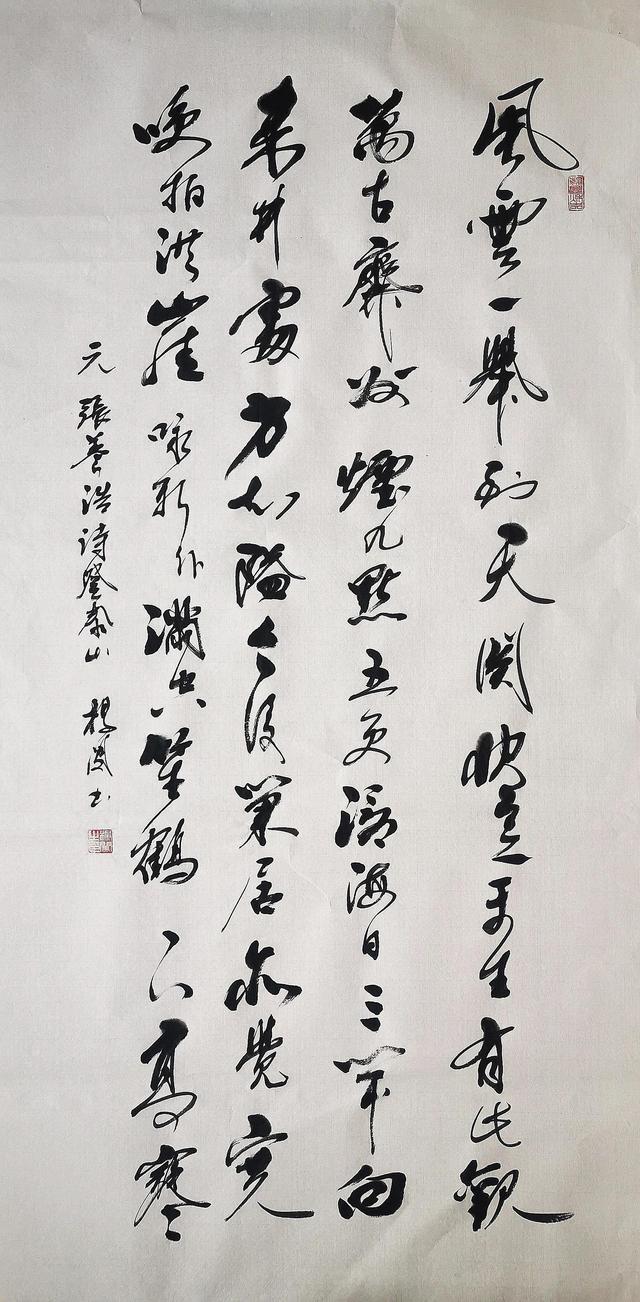 風雲一舉到天関快意平生有此觀
萬古齊州煙九點五更滄海日三竿向
来井處方知隘今後巢居亦覺寬
咲拍洪崖咏新作滿空笙鶴下高寒
元 張養浩诗登泰山 楊书